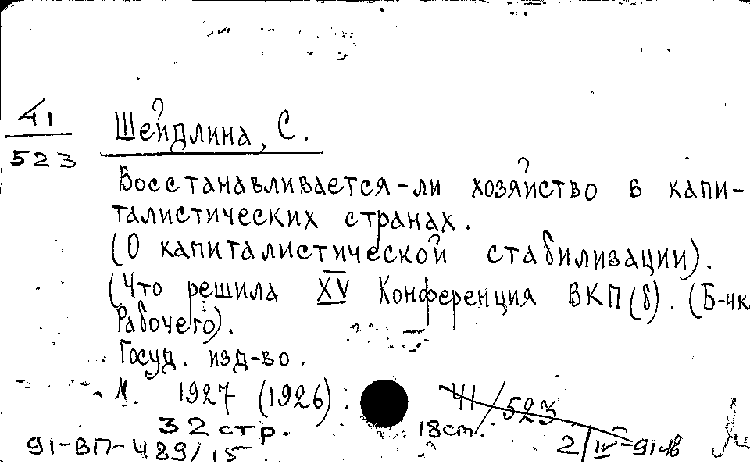 41
523
Шейдлина, С.
Восстанавливается-ли хозяйство в капи-
талистических странах.
(О капиталистической стабилизации).
(Что решила XV Конференция ВКП(б). (Б-чк
Рабочего).
Госуд. изд-во.
М. 1927 (1926).
32 стр.
18cm.
41/523
91-ВП-489/15